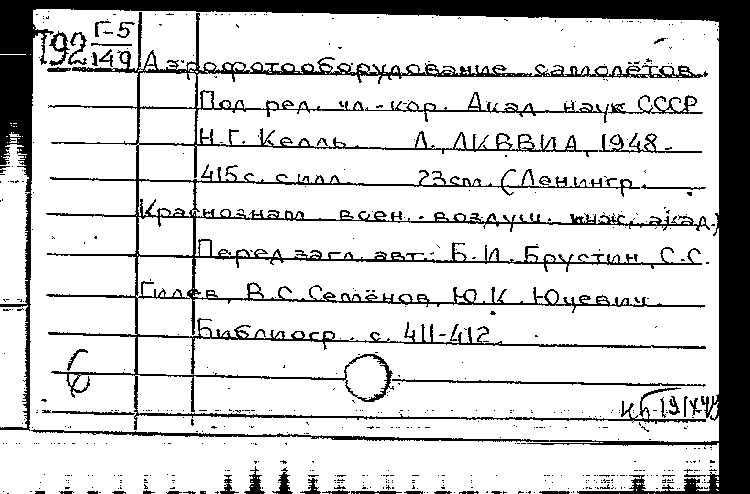 Т92 Г-5
149
Аэрофотооборудование самолётов.
Под ред. чл.-кор. Акад. наук СССР
Н.Г. Келль. Л., ЛКВВИА, 1948.
415 с. с илл. 23 см. (Ленингр.
Краснознам. воен.-воздуш. инж. акад.)
Перед загл. авт.: Б.И. Брустин, С.С.
Гилев, В.С. Семёнов, Ю.К. Юцевич.
Библиогр. с. 411-412.
6